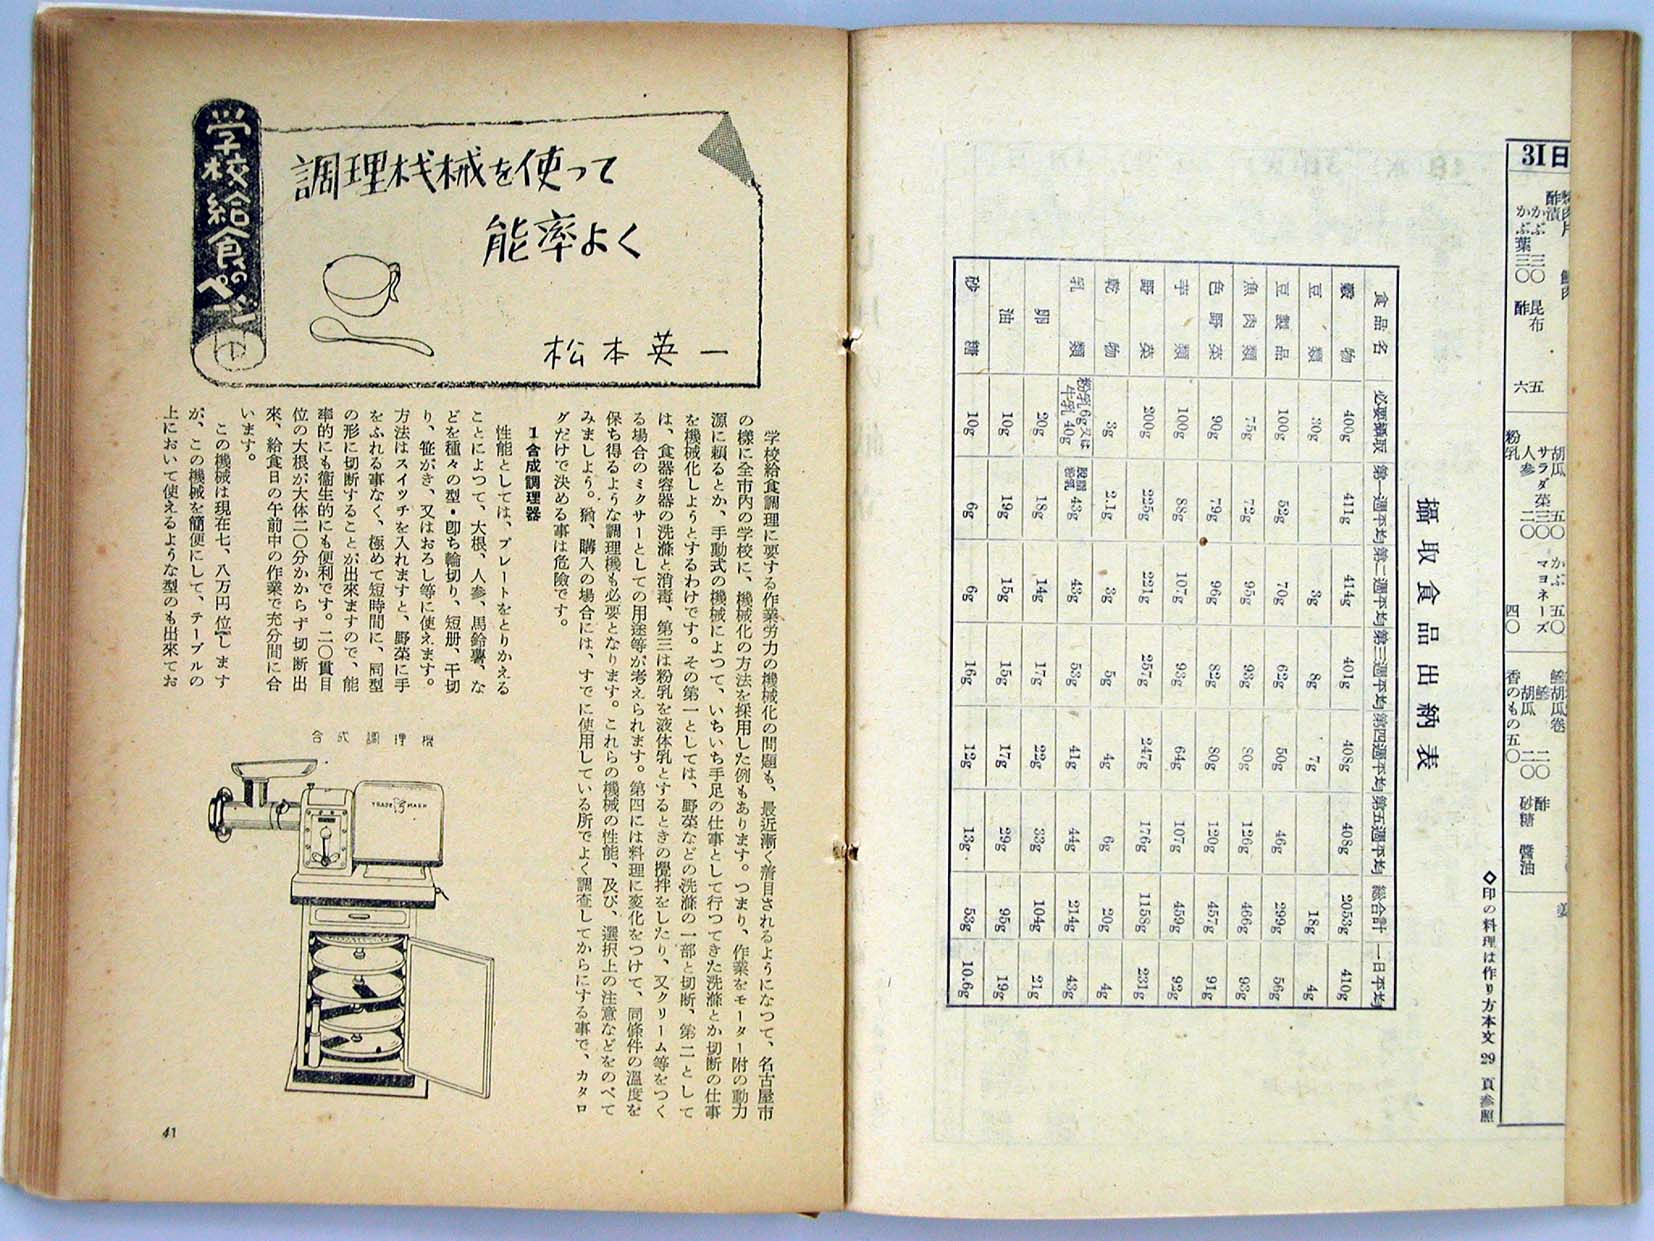 31日
酢漬
かぶ 三〇 昆布 五
かぶ葉 三〇 酢 六
胡瓜 五〇 かぶ 五〇
サラダ菜 三〇 マヨネーズ
人参 二〇
粉乳 四〇
鯵胡瓜巻
鯵 二〇 酢
胡瓜 二〇 砂糖 醬油
香のもの 五〇
◇印の料理は作り方本文 29 頁参照
攝取食品出納表
食品名 必要攝取 第一週平均 第二週平均 第三週平均 第四週平均 第五週平均 総合計 一日平均
穀物 400g 411g 414g 401g 408g 408g 2053g 410g
豆類 30g 3g 8g 7g 18g 4g
豆製品 100g 52g 70g 62g 50g 46g 299g 56g
魚肉類 75g 72g 95g 93g 80g 126g 466g 93g
色野菜 90g 79g 96g 82g 80g 120g 457g 91g
芋類 100g 88g 107g 93g 64g 107g 459g 92g
野菜 200g 225g 221g 257g 247g 176g 1158g 231g
乾物 3g 2.1g 3g 5g 4g 6g 20g 4g
乳類 粉乳6g又は牛乳40g 脱脂粉乳 43g 43g 53g 41g 44g 214g 43g
卵 20g 18g 14g 17g 22g 33g 104g 21g
油 10g 19g 15g 15g 17g 29g 95g 19g
砂糖 10g 6g 6g 16g 12g 13g 53g 10.6g
学校給食のページ
調理栈械を使って
能率よく
松本英一
学校給食調理に要する作業労力の機械化の問題も、最近漸く着目されるようになつて、名古屋市
の様に全市内の学校に、機械化の方法を採用した例もあります。つまり、作業をモーター附の動力
源に頼るとか、手動式の機械によつて、いちいち手足の仕事として行つてきた洗滌とか切断の仕事
を機械化しようとするわけです。その第一としては、野菜などの洗滌の一部と切断、第二として
は、食器容器の洗滌と消毒、第三は粉乳を液体乳とするときの攪拌をしたり、又クリーム等をつく
る場合のミクサーとしての用途等が考えられます。第四には料理に変化をつけて、同條件の溫度を
保ち得るような調理機も必要となります。これらの機械の性能、及び、選択上の注意などをのべて
みましよう。猶、購入の場合には、すでに使用している所でよく調査してからにする事で、カタロ
グだけで決める事は危險です。
1 合成調理器
性能としては、プレートをとりかえる
ことによつて、大根、人参、馬鈴薯、な
どを種々の型・卽ち輪切り、短册、干切
り、笹がき、又はおろし等に使えます。
方法はスイッチを入れますと、野菜に手
をふれる事なく、極めて短時間に、同型
の形に切断することが出來ますので、能
率的にも衞生的にも便利です。二〇貫目
位の大根が大体二〇分かからず切断出
來、給食日の午前中の作業で充分間に合
います。
この機械は現在七、八万円位しますが、
が、この機械を簡便にして、テーブルの
上において使えるような型のも出來てお
合成調理機
TRADE MARK
41